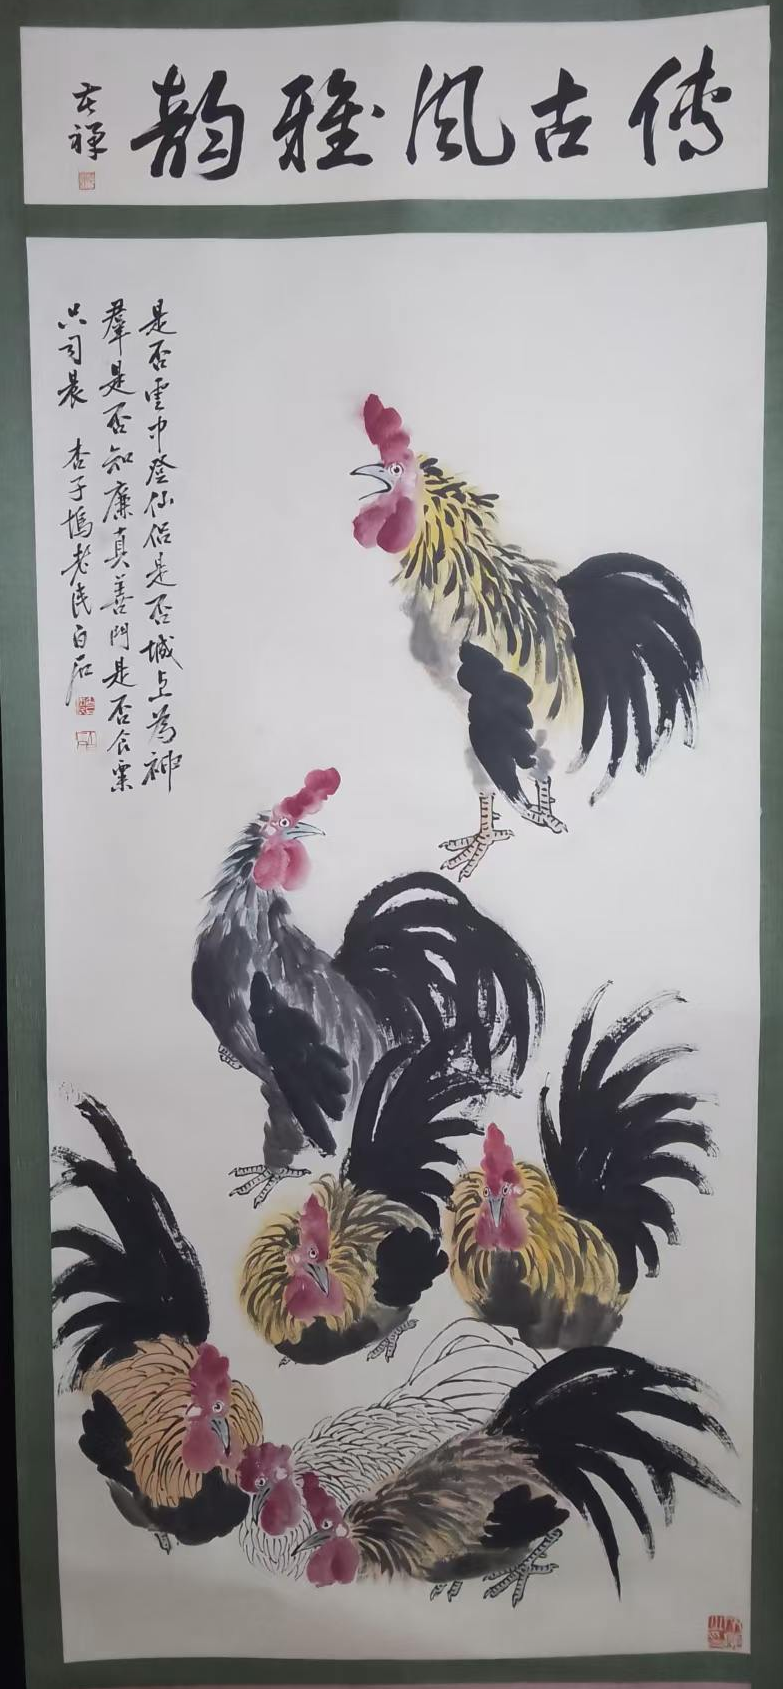 傳古風雅韵
苦禅
是否雲中登仙侣是否城上為神
羣是否知廉真善門是否食粟
只司晨 杏子塢老民白石